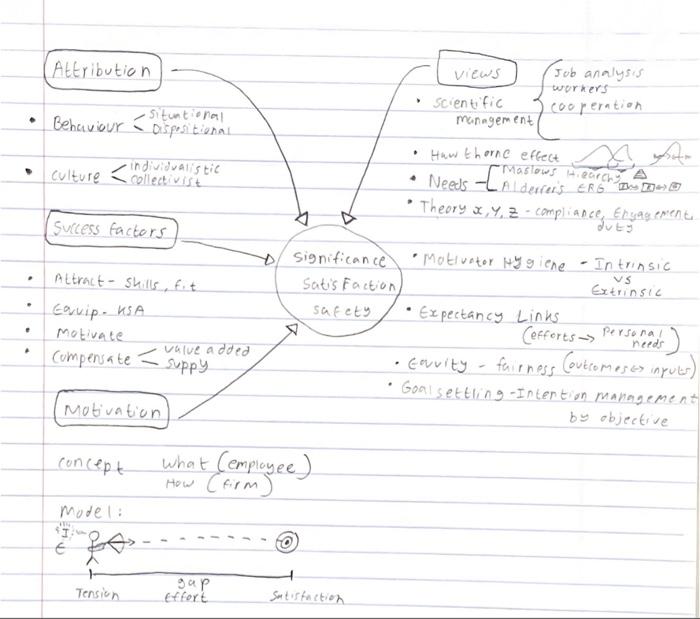 Attribution
• Behaviour < situational
Dispositional
• culture < individualistic
collectivist
Success factors
• Attract - skills, fit
• Equip - KSA
• Motivate
• Compensate < value added
supply
Motivation
concept what (employee)
How (firm)
Model:
"I"
E
gap
Tension effort Satisfaction
Significance
Satisfaction
safety
views
• scientific
management
Job analysis
workers
cooperation
• Hawthorne effect
• Needs - Maslows Hiearchy
Alderfer's ERG
• Theory x, Y, Z - compliance, Engagement,
duty
• Motivator Hygiene - Intrinsic
vs
Extrinsic
• Expectancy Links
(efforts → Personal
needs)
• Equity - fairness (outcomes ↔ inputs)
• Goal settling - Intention management
by objective